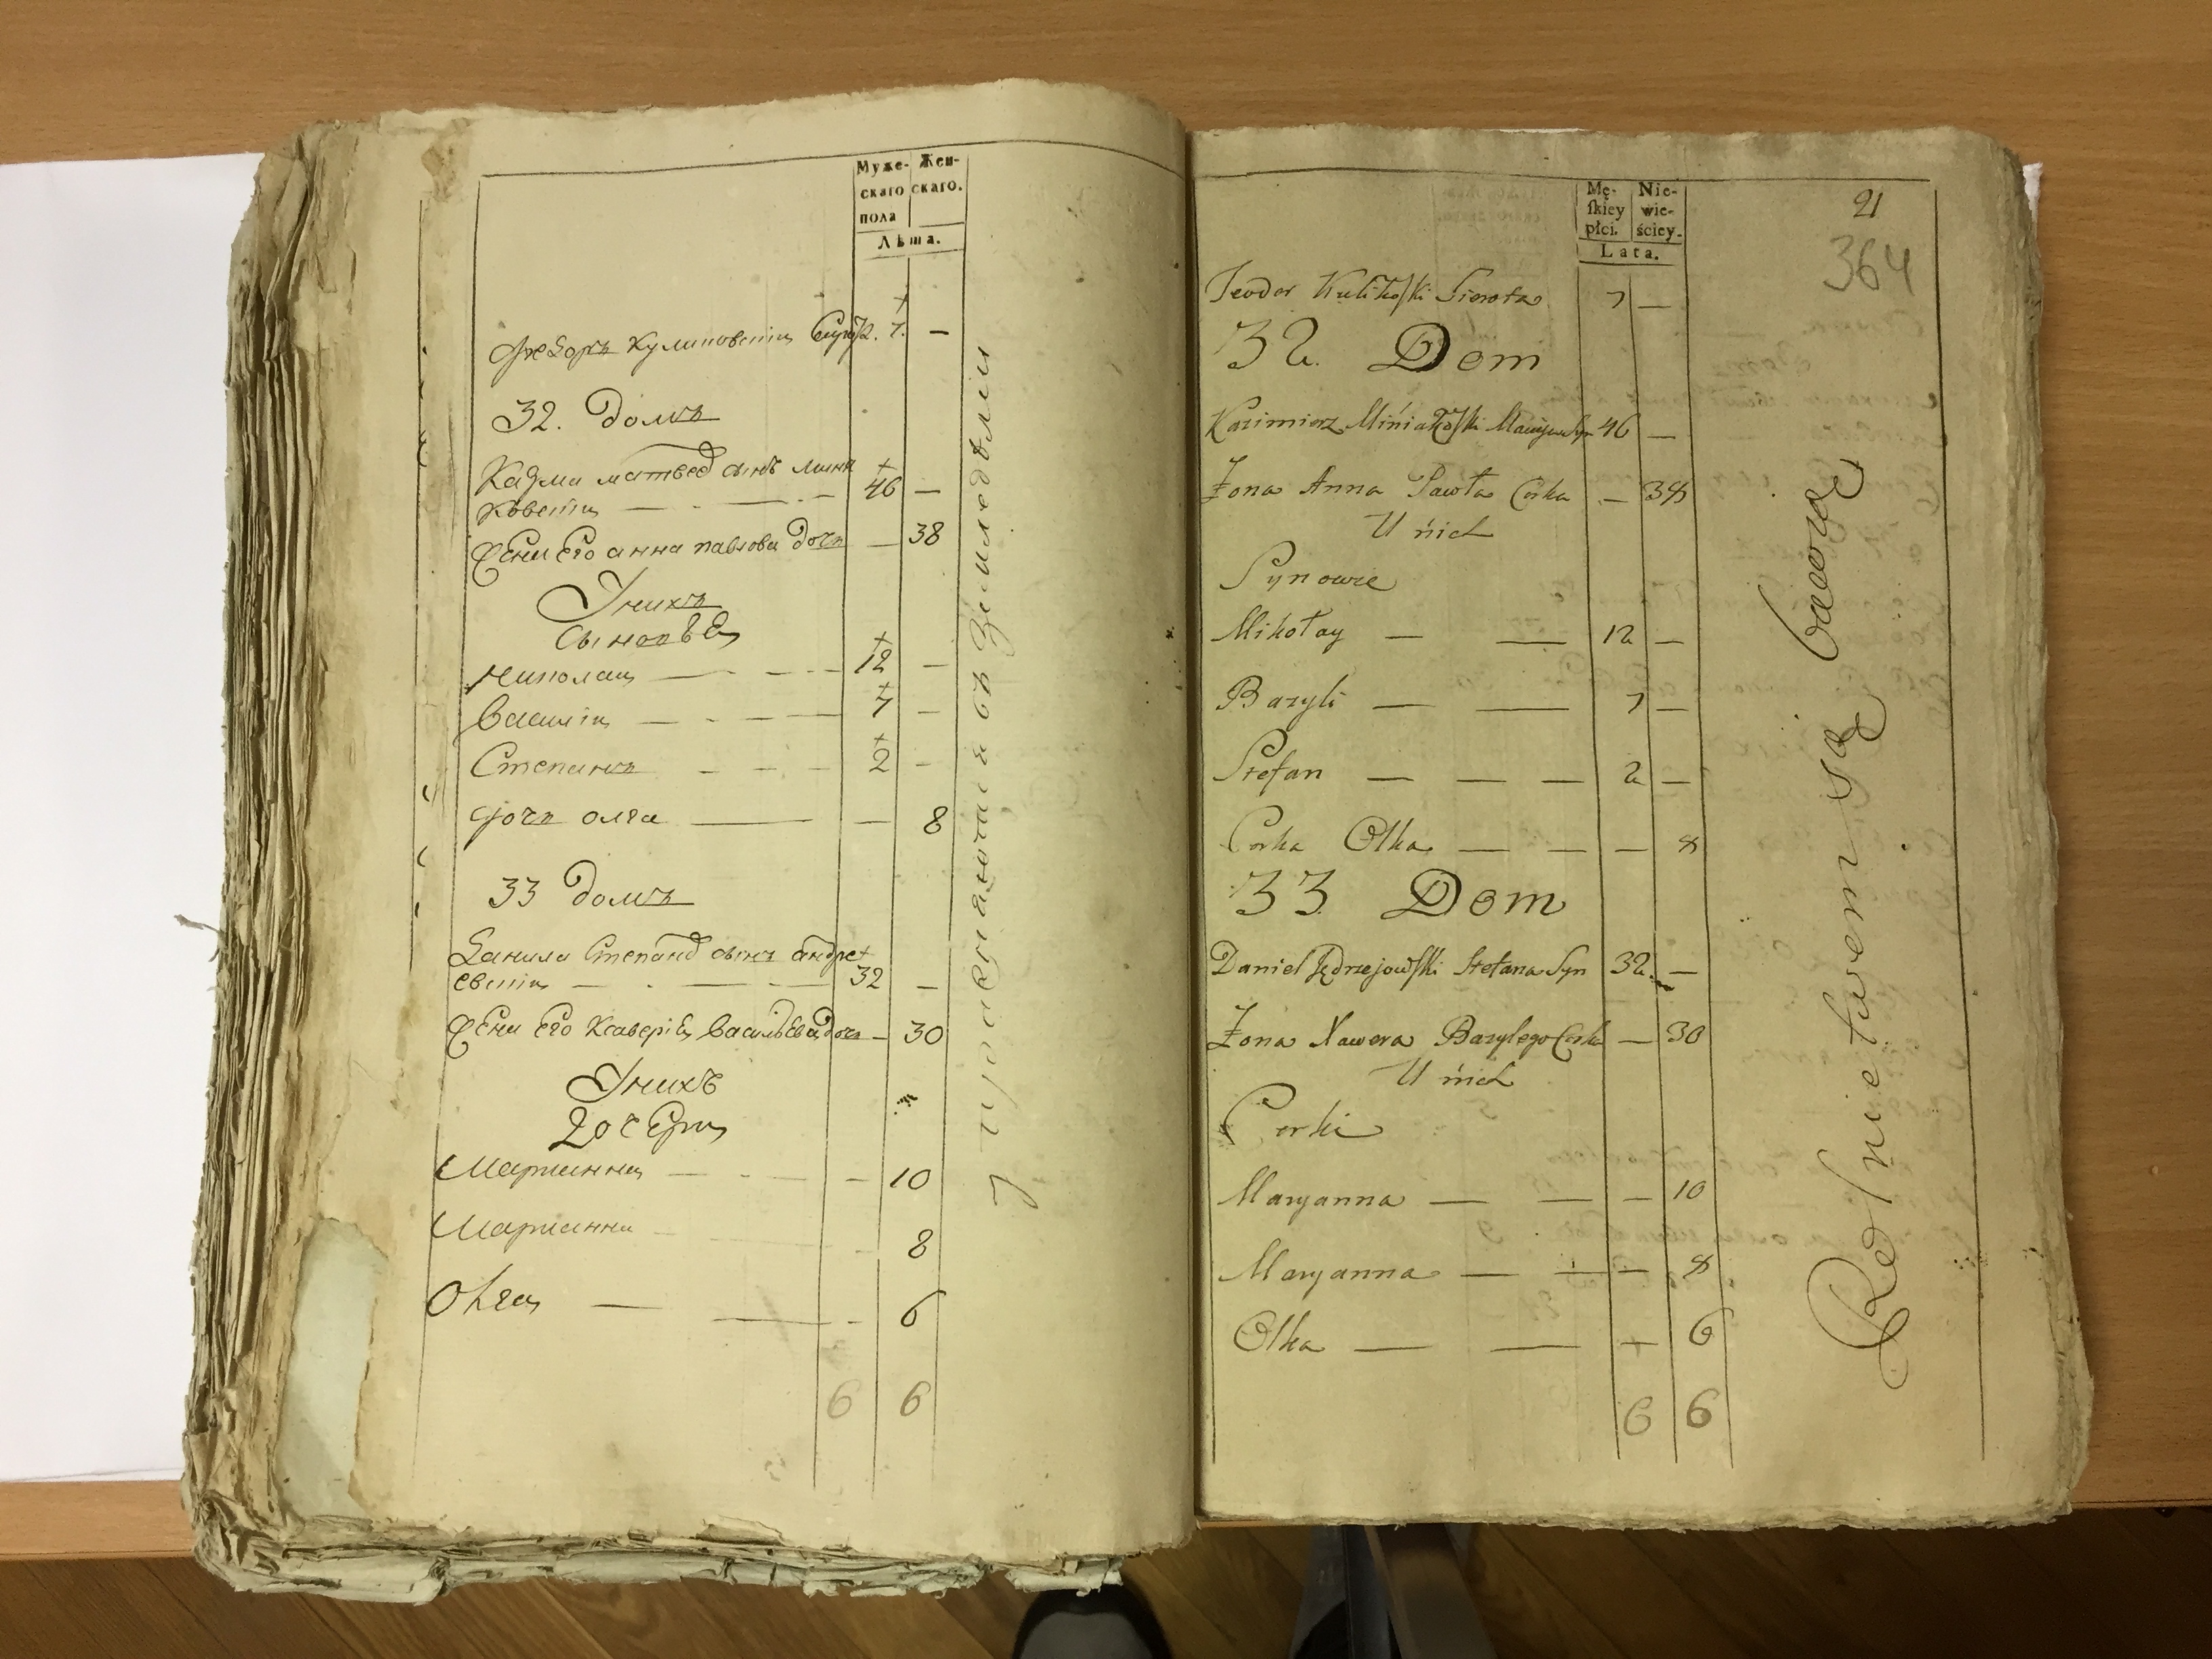 Муже- Жен-
скаго скаго.
пола
Лѣта.
Федоръ Куликовскій Сирота. 7. —
32. Домъ
Казмиръ Матвеев сынъ Миня
ковскій — 46 —
Жена Его Анна Павлова дочь — 38
У нихъ
Сыновья
Николай — 12 —
Василій — 7 —
Степанъ — 2 —
Дочь Олга — — 8
33 Домъ
Данила Степанов сынъ Андре
евскій — 32 —
Жена Его Ксаверія Васильева дочь — 30
У нихъ
Дочери
Марианна — — 10
Марианна — 8
Ольга — — 6
6 6
упражняются въ Земледѣліи
Mę- Nie-
ſkiey wie-
płci. ściey.
Lata.
21
364
Teodor Kulikoſki Sierota 7 —
32. Dom
Kazimierz Mińiakoſki Macieja Syn 46 —
Żona Anna Pawła Corka — 38
U ńich
Synowie
Mikołay — — 12 —
Bazyli — — 7 —
Stefan — — — 2 —
Corka Olka — — — 8
33 Dom
Daniel Jędrzejowſki Stefana Syn 32. —
Żona Xawera Bazylego Corka — 30
U ńich
Corki
Maryanna — — — 10
Maryanna — — — 8
Olka — — — 6
6 6
Rolnictwem są bawią